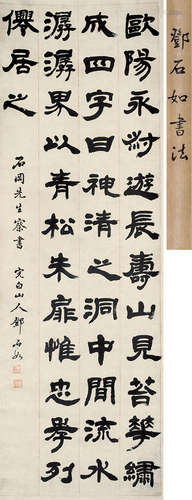 鄧石如書法
歐陽永叔遊長壽山見苔華繡
成四字曰神清之洞中間流水
潺潺果以青松朱扉惟忠孝列
僊居之
石岡先生察書
完白山人鄧石如